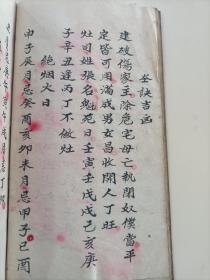 坐訣吉凶
建破傷家主除危宅母亡執閉奴僕當平
定皆可用滿成男女昌收開人丁旺
灶司姓張名魁死日壬寅壬戌戊己亥庚
子辛丑逢丙丁不做灶
絕烟火日
申子辰月忌癸酉亥卯未月忌甲子己酉